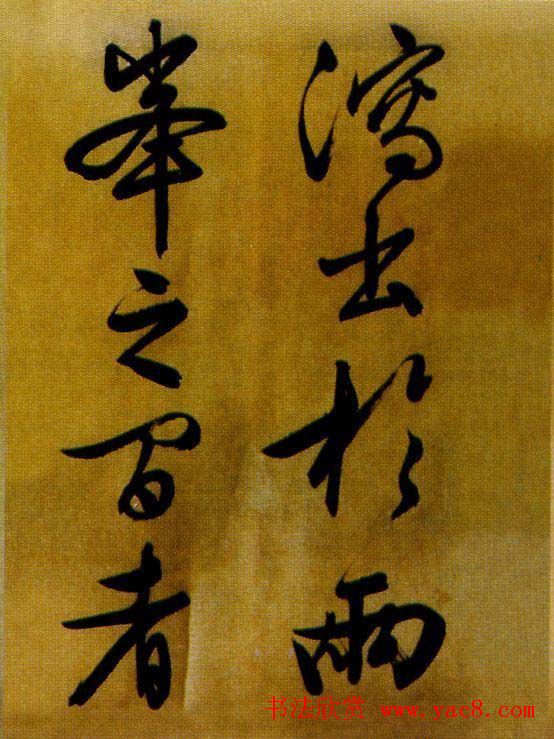 瀉出於兩
峯之間者
书法欣赏 www.yac8.com